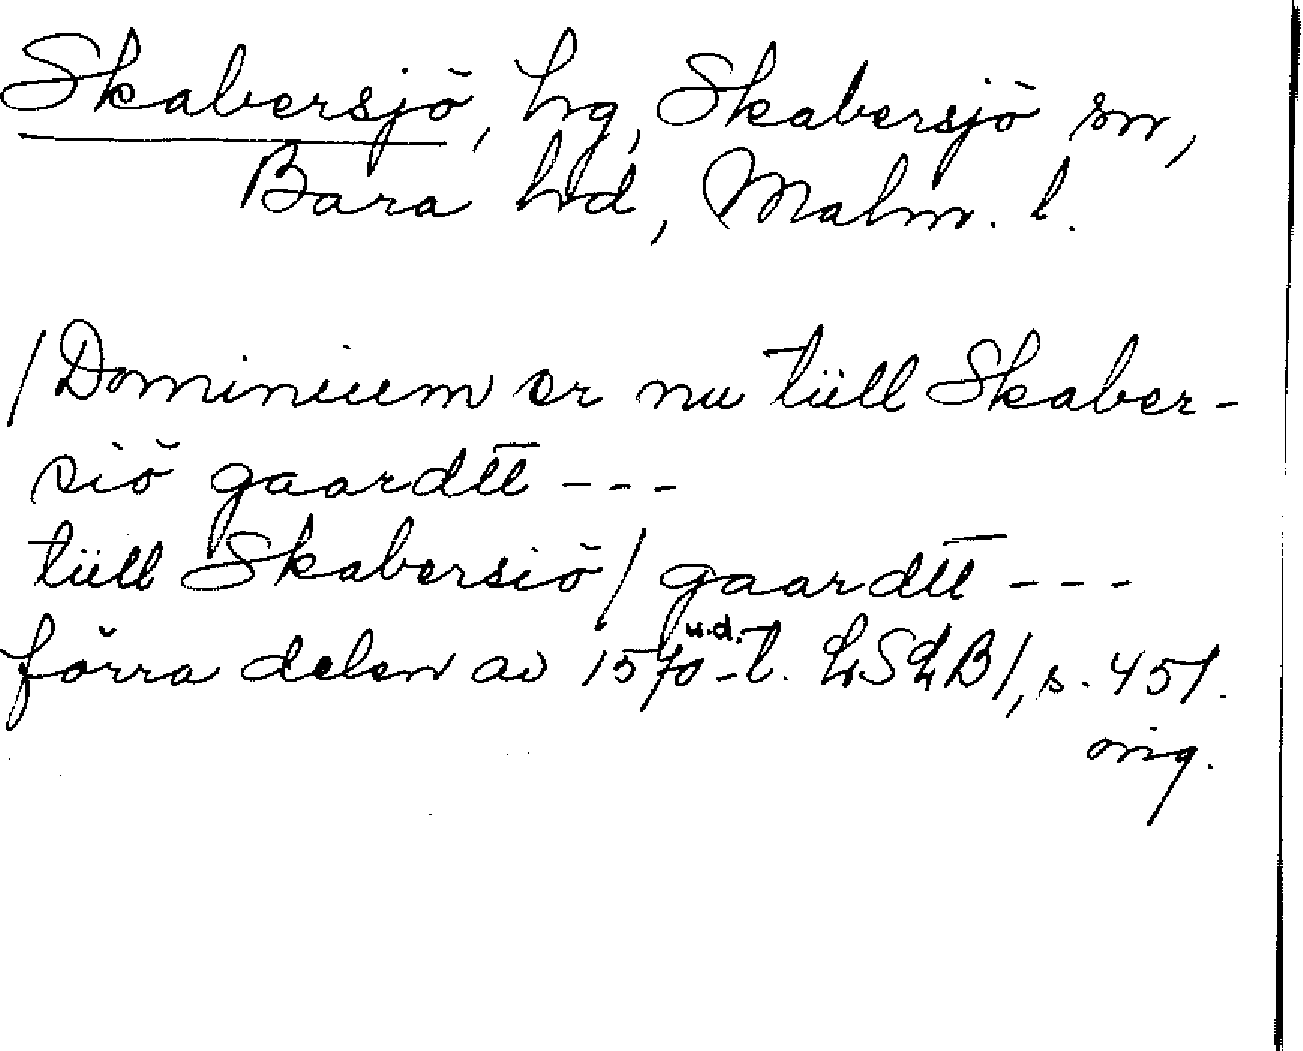 Skabersjö, hg, Skabersjö sn,
Bara hd, Malm. l.
/Dominium er nu tüll Skaber-
siö gaardtt ---
tüll Skabersiö/ gaardtt ---
förra delen av 1570-t. u.d. LSLB/, s. 451.
orig.